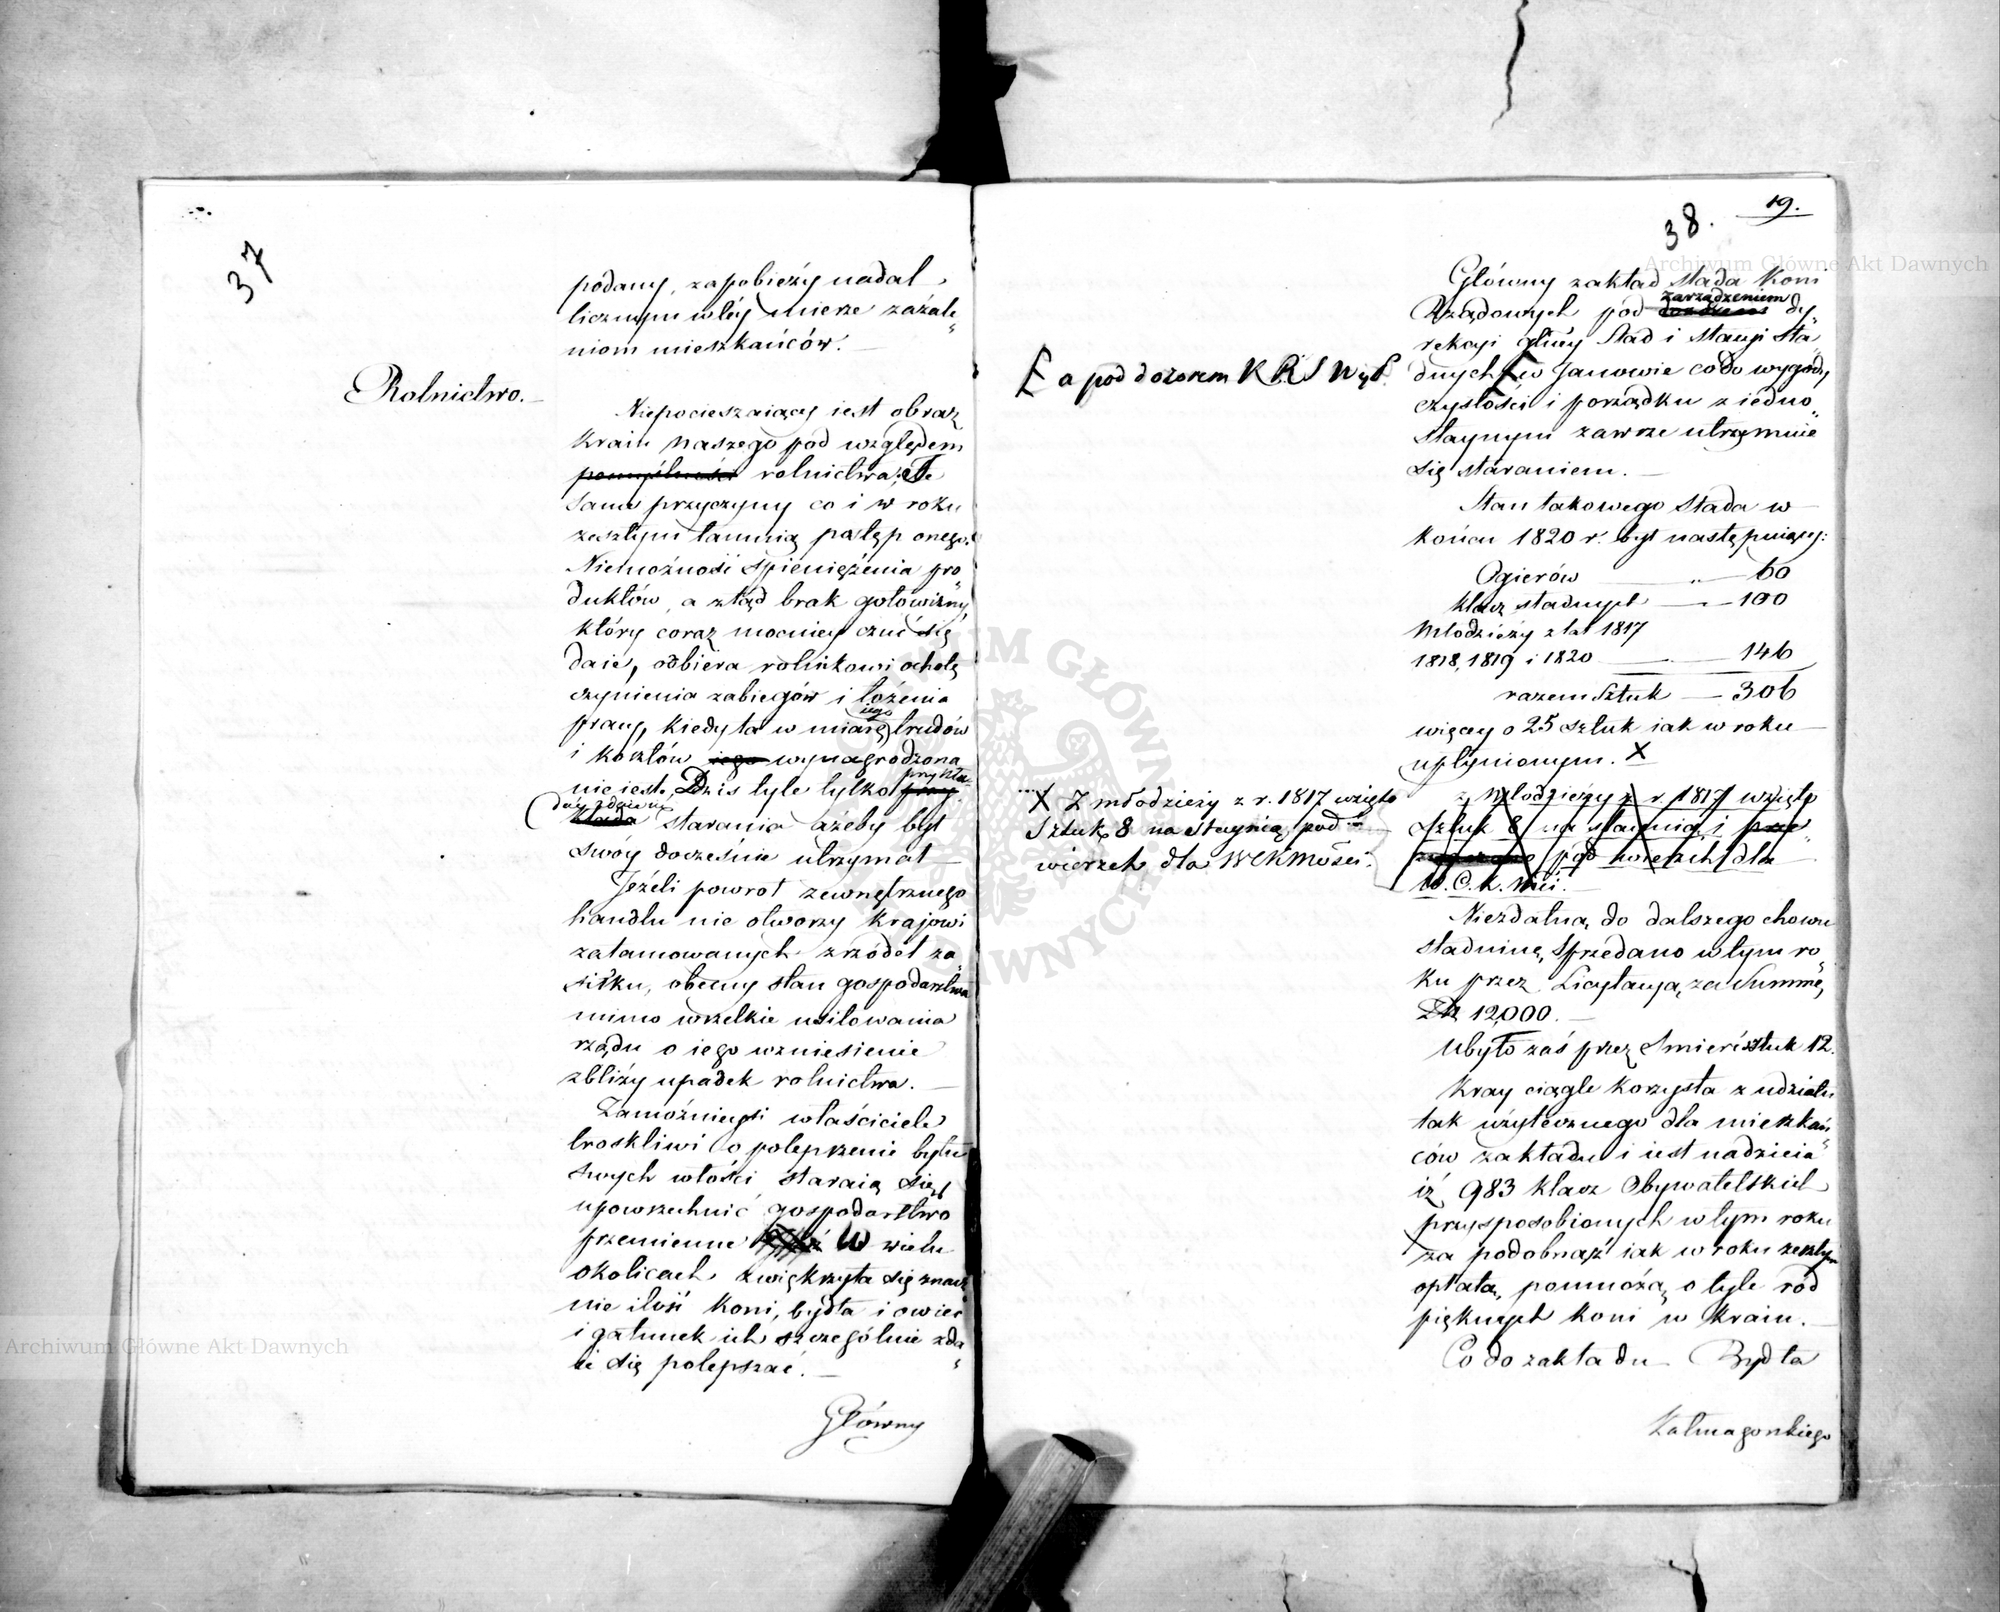 37
podany, zapobieży nadal
licznym w tey mierze zażale„
niom mieszkańców. —
Rolnictwo. —
Niepocieszaiący iest obraz
Kraiu naszego pod względem
pomyślności rolnictwa. Te
same przyczyny co i w roku
zeszłym tamuią postęp onego.
Niemożność spieniężenia pro„
duktów, a ztąd brak gotowizny,
który coraz mocniey czuć się
daie, odbiera rolnikowi ochotę
czynienia zabiegów i łożenia
iego
pracy, kiedy ta w miarę trudów
i kosztów iego wynagrodzona
przykła„
nie iest. Dziś tyle tylko przy„
kłada starania ażeby byt
swóy docześnie utrzymał —
Jeżeli powrot zewnętrznego
handlu nie otworzy Krajowi
zatamowanych zrzódeł za„
siłku, obecny stan gospodarstwa
mimo wszelkie usiłowania
rządu o iego wzniesienie
zbliży upadek rolnictwa. —
Zamożnieysi właściciele
troskliwi o polepszenie bytu
swych włości staraią się
upowszechnić gospodarstwo
przemienne W wielu
okolicach zwiększyła się znacz„
nie ilość Koni, bydła i owiec
i gatunek ich szczególnie zda„
ie się polepszać. —
Główny
38.
19.
Główny zakład stada Koni
zarządzeniem
Rządowych pod dozorem dy„
rekcyi główy Stad i Stayn Sta„
a pod dozorem K R S W y P.
dnych w Janowie co do wygody,
czystości i porządku z iedno„
staynym zawsze utrzymuie
się staraniem. —
Stan takowego Stada w —
końcu 1820 r. był następuiący:
Ogierów — „ — 60
klacz stadnych — „ — 100
Młodzieży z lat 1817
1818, 1819 i 1820 — „ — 146
razem Sztuk — 306
więcey o 25 sztuk iak w roku —
upłynionym. X
X Z młodzieży z r. 1817 wzięto
Sztuk 8 na staynię pod —
wierzch dla WCKMości.
z Młodzieży z r. 1817 wzięto
Sztuk 8 na staynią i prze„
pod wierzch dla
W. C. K. Mci. —
Niezdatną do dalszego chowu
stadninę, sprzedano w tym ro„
ku przez Licytacyą za Summę
Zł 12,000. —
Ubyło zaś przez Smierć sztuk 12.
Kray ciągle korzysta z udziału
tak użytecznego dla mieszkań„
ców zakładu i iest nadzieia
iż 983 klacz Obywatelskich
przysposobionych w tym roku
za podobnąż iak w roku zeszłym
opłatą, pomnożą o tyle ród
pięknych koni w Kraiu. —
Co do zakładu Bydła
Kałmagorskiego